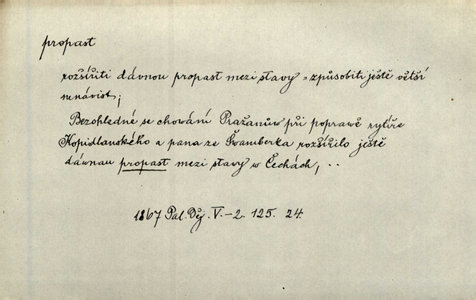 propast
rozšířiti dávnou propast mezi stavy = způsobiti ještě větší
nenávist;
Bezohledné se chování Pražanův při popravě rytíře
Kopidlanského a pana ze Švamberka rozšířilo ještě
dávnau propast mezi stavy w Čechách, . .
1867 Pal. Děj. V.–2. 125. 24.